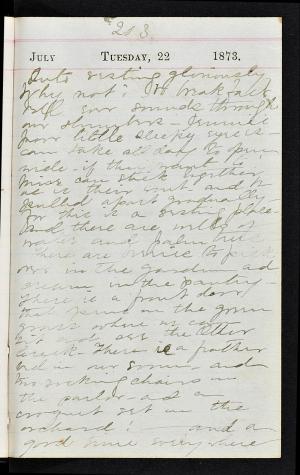 203.
JULY TUESDAY, 22 1873.
resting gloriously
Why not? No breakfast
bell ever sounds through
our slumbers - Jennie's
poor little sleepy eyes
can take all day to open
wide if they want to
stick together
as is their wont and be
pulled apart gradually -
for this is a resting place
and there are wells of
water and palm trees
there are to pick
over in the garden and
cream in the pantry -
There is a front door
that opens on the green
grass where we can
sit and see the other
There is a feather
bed in our room, and
two rocking chairs in
the parlor and a
croquet set in the
orchard! and a
good time everywhere